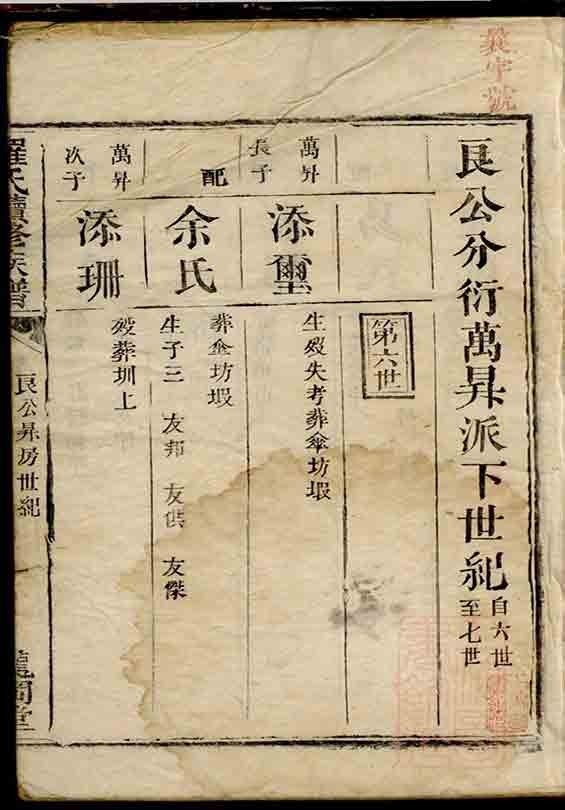 良公分衍萬昇派下世紀
自六世
至七世
第六世
萬昇
長子
添璽
生歿失考葬傘坊塅
配
余氏
葬傘坊塅
生子三 友邦 友供 友傑
萬昇
次子
添珊
歿葬圳上
羅氏續修族譜
良公昇房世紀